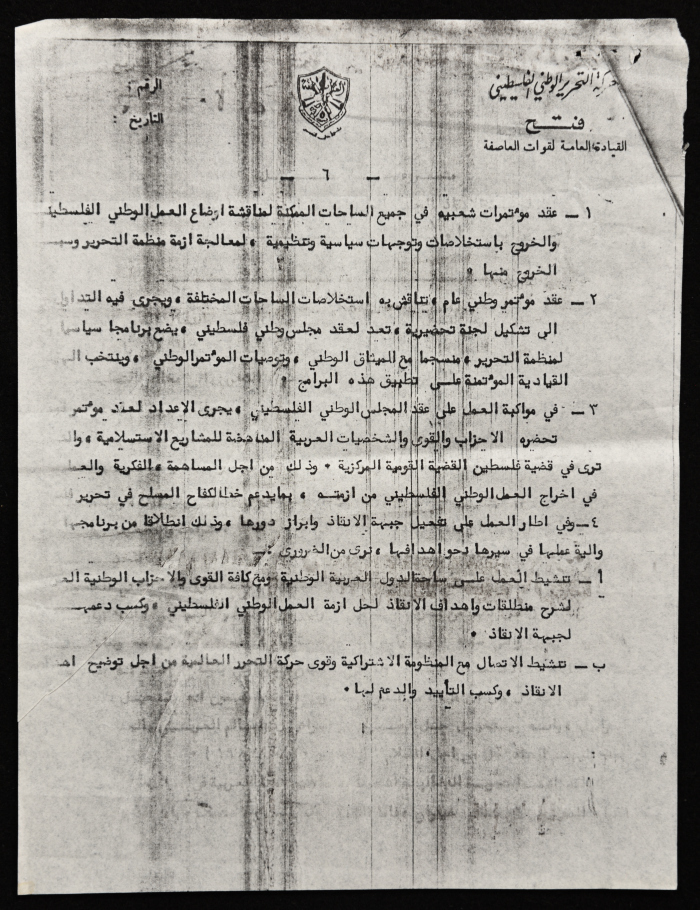 حركة التحرير الوطني الفلسطيني
فتح
القيادة العامة لقوات العاصفة
الرقم :
التاريخ :
ـ ٦ ـ
١ ـ عقد موءتمرات شعبيه في جميع الساحات الممكنة لمناقشة اوضاع العمل الوطني الفلسطيـ
والخروج باستخلاصات وتوجهات سياسية وتنظيمية ، لمعالجة ازمة منظمة التحرير وسبـ
الخروج منها ٠
٢ ـ عقد موءتمر وطني عام ، تناقش به استخلاصات الساحات المختلفة ، ويجرى فيه التداول
الى تشكيل لجنة تحضيرية ، تعد لعقد مجلس وطني فلسطيني ، يضع برنامجا سياسيا
لمنظمة التحرير ، منسجما مع الميثاق الوطني ، وتوصيات الموءتمر الوطني ، وينتخب
القيادية الموءتمنة على تطبيق هذه البرامج ٠
٣ ـ في مواكبة العمل على عقد المجلس الوطني الفلسطيني ، يجرى الاعداد لعقد موءتمر
تحضره الاحزاب والقوى والشخصيات العربية المناهضة للمشاريع الاستسلامية ،
ترى في قضية فلسطين القضية القومية المركزية ٠ وذلك من اجل المساهمة ، الفكرية والعمـ
في اخراج العمل الوطني الفلسطيني من ازمته ، بما يدعم خط الكفاح المسلح في تحرير
٤ ـ وفي اطار العمل على تفعيل جبهة الانقاذ وابراز دورها ، وذلك انطلاقا من برنامجها
والية عملها في سيرها نحو اهدافها ، نرى من الضرورى :ـ
أ ـ تنشيط العمل على ساحة الدول العربية الوطنية ومع كافة القوى والاحزاب الوطنية
لشرح منطلقات واهداف الانقاذ لحل ازمة العمل الوطني الفلسطيني ، وكسب دعمهـ
لجبهة الانقاذ ٠
ب ـ تنشيط الاتصال مع المنظومة الاشتراكية وقوى حركة التحرر العالمية من اجل توضيح
الانقاذ ، وكسب التأييد والدعم لها ٠